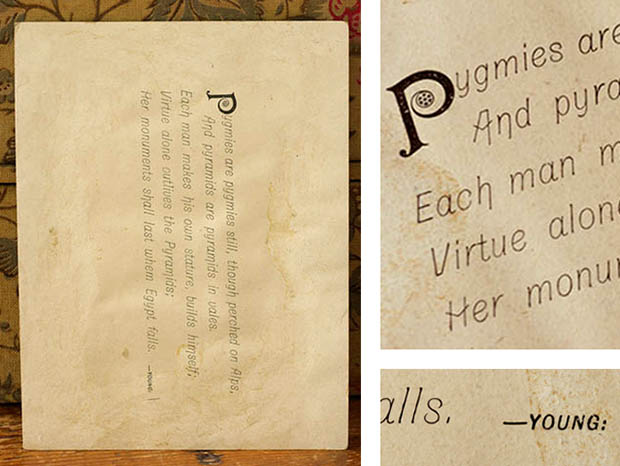 Pygmies are pygmies still, though perched on Alps,
And pyramids are pyramids in vales.
Each man makes his own stature, builds himself;
Virtue alone outlives the Pyramids;
Her monuments shall last whem Egypt falls. —YOUNG:
Pygmies are
And pyra
Each man m
Virtue alon
Her monu
alls. —YOUNG: